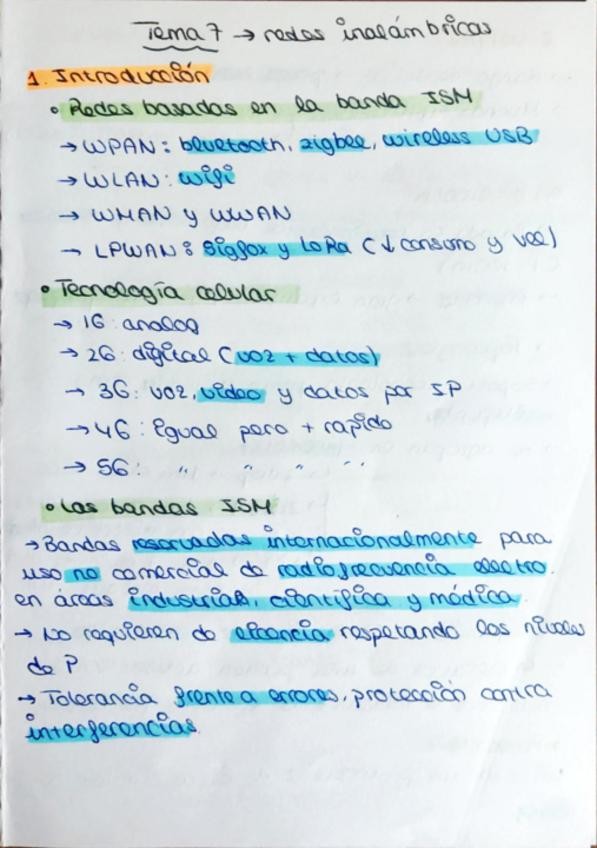 Tema 7 → redes inalámbricas
1. Introducción
• Redes basadas en la banda ISM
→ WPAN: bluetooth, zigbee, wireless USB
→ WLAN: wifi
→ WMAN y WWAN
→ LPWAN: Sigfox y LoRa (↓ consumo y vel)
• Tecnología celular
→ 1G: analog
→ 2G: digital (voz + datos)
→ 3G: voz, video y datos por IP
→ 4G: igual pero + rápido
→ 5G: " " " "
• Las bandas ISM
→ Bandas reservadas internacionalmente para
uso no comercial de radiofrecuencia electro.
en áreas industrial, científica y médica.
→ No requieren de licencia respetando los niveles
de P
→ Tolerancia frente a errores, protección contra
interferencias.